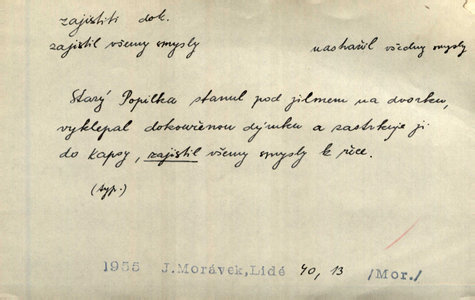 zajistiti dok.
zajistil všemy smysly nastražil všechny smysly
Starý Popilka stanul pod jilmem na dvorku,
vyklepal dokouřenou dýmku a zastrkuje ji
do kapsy, zajistil všemy smysly k řece.
(typ.)
1955 J.Morávek,Lidé 40, 13 /Mor./